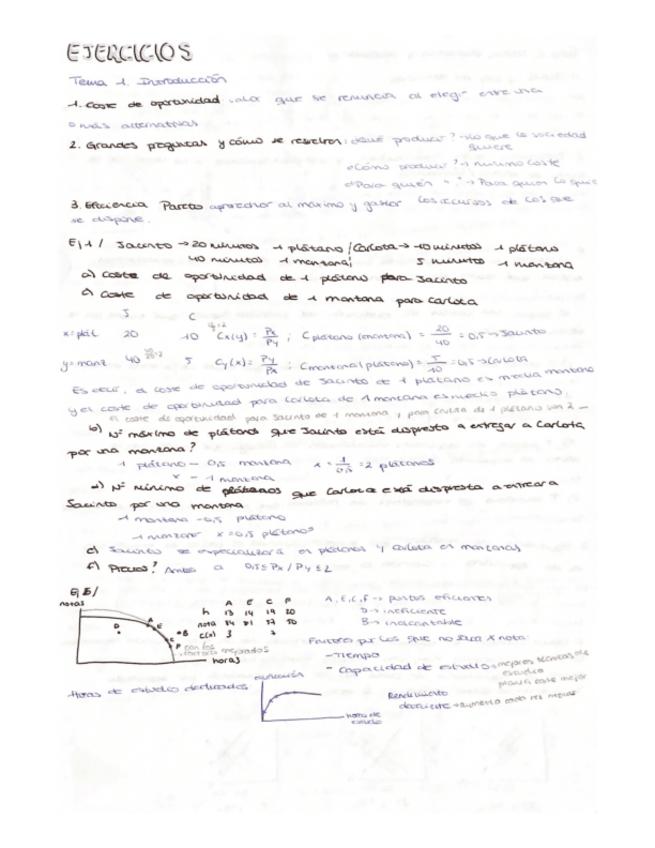 EJERCICIOS
Tema 1. Introducción
1. Coste de oportunidad valor que se renuncia al elegir entre una
o más alternativas
2. Grandes preguntas y cómo se resuelven: ¿Qué producir? → Lo que la sociedad
quiere
¿Cómo producir? → mínimo coste
¿Para quién " " → Para quien lo
3. Eficiencia Pareto aprovechar al máximo y gastar los recursos de los que
se dispone.
Ej 1 / Jacinto → 20 minutos 1 plátano / Carlota → 10 minutos 1 plátano
40 minutos 1 manzana; 5 minutos 1 manzana
a) Coste de oportunidad de 1 plátano para Jacinto
Coste de oportunidad de 1 manzana para Carlota
J C
x = plát. 20 10 Cx(y) = Px/Py ; C plátano (manzana) = 20/40 = 0,5 → Jacinto
y = manz. 40 5 Cy(x) = Py/Px ; C manzana (plátano) = 5/10 = 0,5 → Carlota
Es decir, el coste de oportunidad de Jacinto de 1 plátano es media manzana
y el coste de oportunidad para Carlota de 1 manzana es medio plátano.
El coste de oportunidad para Jacinto de 1 manzana y para Carlota de 1 plátano son 2
b) Nº máximo de plátanos que Jacinto está dispuesto a entregar a Carlota
por una manzana?
1 plátano — 0,5 manzana x = 1/0,5 = 2 plátanos
x — 1 manzana
Nº mínimo de plátanos que Carlota está dispuesta a
Jacinto por una manzana
1 manzana - 0,5 plátano
1 manzana x = 0,5 plátanos
Jacinto se especializará en plátanos y Carlota en manzanas
Precios? a 0,5 ≤ Px / Py ≤ 2
notas
A E C F
h 13 14 19 20
nota
D
B
horas
A, E, C, F → puntos eficientes
D → ineficiente
B → inalcanzable
Factores por los que no saca x nota:
- Tiempo
- Capacidad de estudio → mejores técnicas de
estudio
Horas de estudio dedicadas
horas de
estudio
Rendimiento
decreciente → aumenta cada vez menos